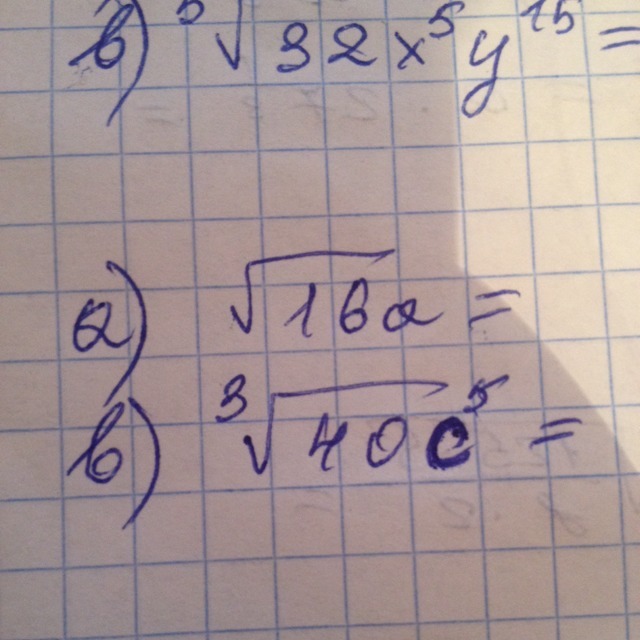 в) ⁵√32x⁵y¹⁵ =
а) √16a =
в) ³√40c⁵ =